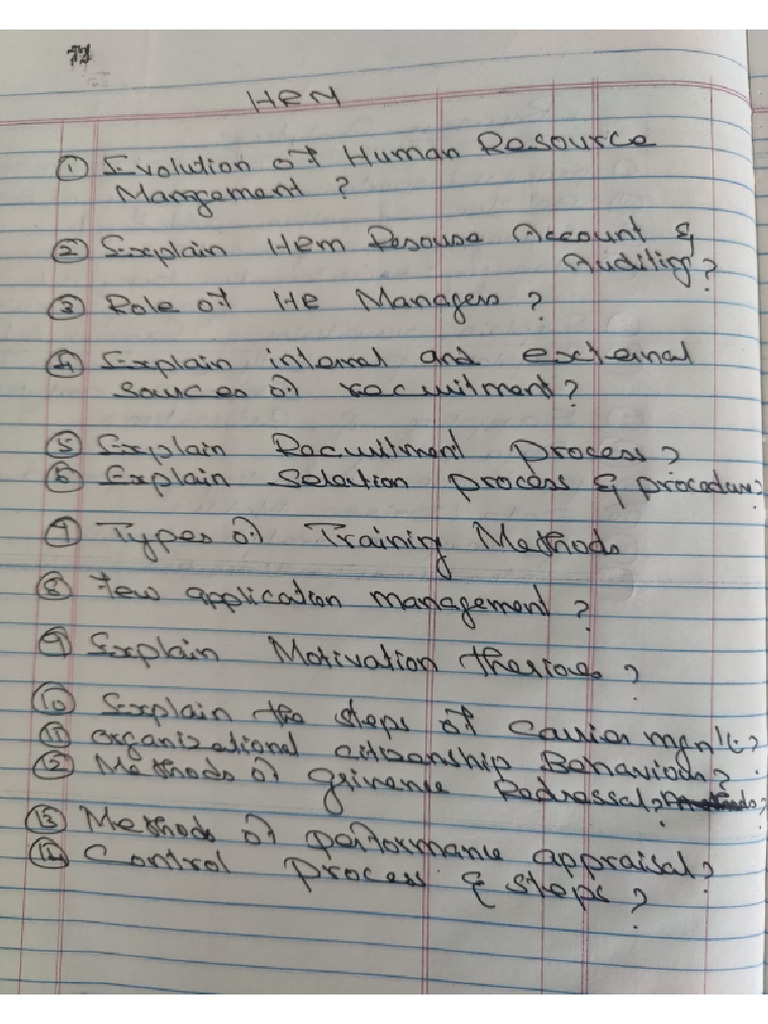 HRM
① Evolution of Human Resource
Mangement ?
② Explain HRM Resouse Account &
Auditing?
③ Role of HR Managers ?
④ Explain internal and external
sources of recruitment?
⑤ Explain Recruitment Process?
⑥ Explain Selection process & procedure?
⑦ Types of Training Methods
⑧ few application management ?
⑨ Explain Motivation theriones ?
⑩ Explain the steps of Carrier mgn't?
⑪ Organizational citizenship Behaviour?
⑫ Methods of grivance Redressal?
⑬ Methods of performance appraisal?
⑭ Control process & steps ?